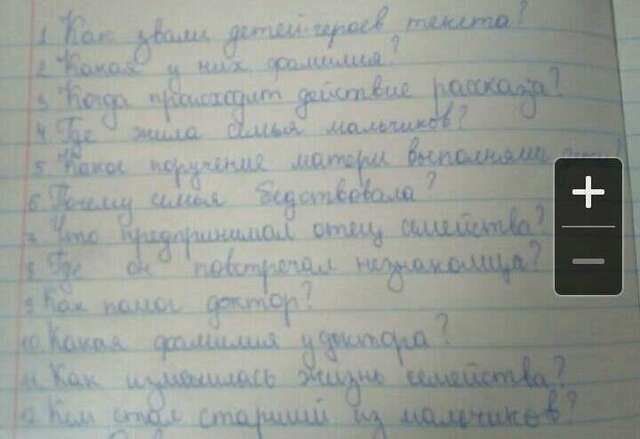 1. Как звали детей-героев текста?
2. Какая у них фамилия?
3. Когда происходит действие рассказа?
4. Где жила семья мальчиков?
5. Какое поручение матери выполняли
6. Почему семья бедствовала?
7. Что предпринимал отец семейства?
8. Где он повстречал незнакомца?
9. Как помог доктор?
10. Какая фамилия у доктора?
11. Как изменилась жизнь семейства?
12. Кем стал старший из мальчиков?